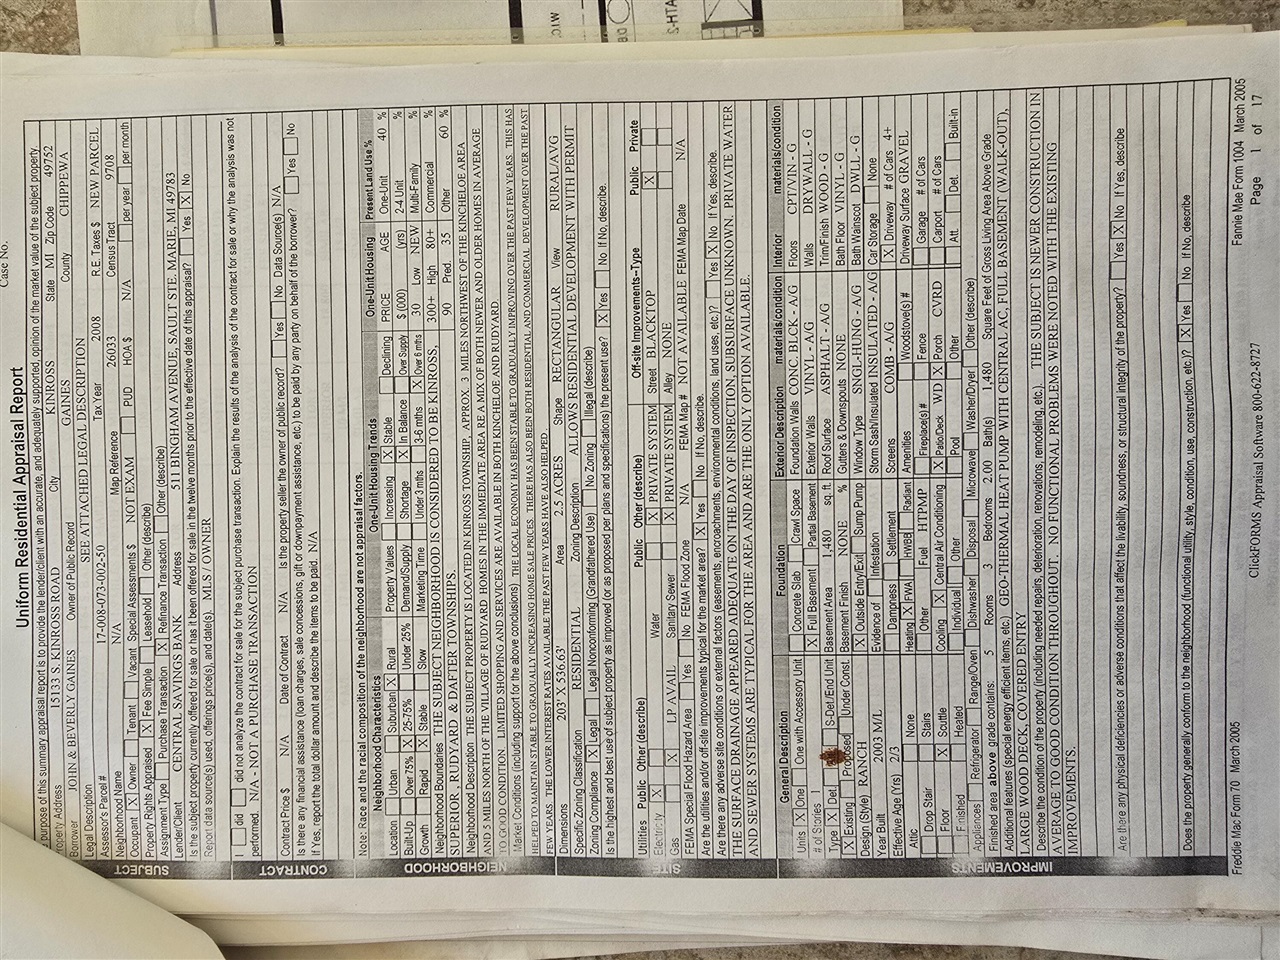 Case No.
Uniform Residential Appraisal Report
purpose of this summary appraisal report is to provide the lender/client with an accurate, and adequately supported, opinion of the market value of the subject property.
Property Address 15133 S. KINROSS ROAD City KINROSS State MI Zip Code 49752
JOHN & BEVERLY GAINES Owner of Public Record GAINES County CHIPPEWA
Legal Description SEE ATTACHED LEGAL DESCRIPTION
Assessor's Parcel # 17-008-073-002-50 Tax Year 2008 R.E. Taxes $ NEW PARCEL
Neighborhood Name N/A Map Reference 26033 Census Tract 9708
Occupant X Owner Tenant Vacant Special Assessments $ NOT EXAM PUD HOA $ N/A per year per month
Property Rights Appraised X Fee Simple Leasehold Other (describe)
Assignment Type Purchase Transaction X Refinance Transaction Other (describe)
Lender/Client CENTRAL SAVINGS BANK Address 511 BINGHAM AVENUE, SAULT STE. MARIE, MI 49783
Is the subject property currently offered for sale or has it been offered for sale in the twelve months prior to the effective date of this appraisal? Yes X No
Report data source(s) used, offerings price(s), and date(s). MLS / OWNER
SUBJECT
I did did not analyze the contract for sale for the subject purchase transaction. Explain the results of the analysis of the contract for sale or why the analysis was not
performed. N/A - NOT A PURCHASE TRANSACTION
Contract Price $ N/A Date of Contract N/A Is the property seller the owner of public record? Yes No Data Source(s) N/A
Is there any financial assistance (loan charges, sale concessions, gift or downpayment assistance, etc.) to be paid by any party on behalf of the borrower? Yes No
If Yes, report the total dollar amount and describe the items to be paid. N/A
CONTRACT
Note: Race and the racial composition of the neighborhood are not appraisal factors.
Neighborhood Characteristics One-Unit Housing Trends One-Unit Housing Present Land Use %
Location Urban Suburban X Rural Property Values Increasing X Stable Declining PRICE AGE One-Unit 40 %
Built-Up Over 75% X 25-75% Under 25% Demand/Supply Shortage X In Balance Over Supply $ (000) (yrs) 2-4 Unit %
Growth Rapid X Stable Slow Marketing Time Under 3 mths 3-6 mths X Over 6 mths 30 Low NEW Multi-Family %
Neighborhood Boundaries THE SUBJECT NEIGHBORHOOD IS CONSIDERED TO BE KINROSS, 300+ High 80+ Commercial %
SUPERIOR, RUDYARD & DAFTER TOWNSHIPS. 90 Pred. 35 Other 60 %
Neighborhood Description THE SUBJECT PROPERTY IS LOCATED IN KINROSS TOWNSHIP, APPROX. 3 MILES NORTHWEST OF THE KINCHELOE AREA
AND 5 MILES NORTH OF THE VILLAGE OF RUDYARD HOMES IN THE IMMEDIATE AREA ARE A MIX OF BOTH NEWER AND OLDER HOMES IN AVERAGE
TO GOOD CONDITION. LIMITED SHOPPING AND SERVICES ARE AVAILABLE IN BOTH KINCHELOE AND RUDYARD.
Market Conditions (including support for the above conclusions) THE LOCAL ECONOMY HAS BEEN STABLE TO GRADUALLY IMPROVING OVER THE PAST FEW YEARS. THIS HAS
HELPED TO MAINTAIN STABLE TO GRADUALLY INCREASING HOME SALE PRICES. THERE HAS ALSO BEEN BOTH RESIDENTIAL AND COMMERCIAL DEVELOPMENT OVER THE PAST
FEW YEARS. THE LOWER INTEREST RATES AVAILABLE THE PAST FEW YEARS HAVE ALSO HELPED.
NEIGHBORHOOD
Dimensions 203' X 536.63' Area 2.5 ACRES Shape RECTANGULAR View RURAL/AVG
Specific Zoning Classification RESIDENTIAL Zoning Description ALLOWS RESIDENTIAL DEVELOPMENT WITH PERMIT
Zoning Compliance X Legal Legal Nonconforming (Grandfathered Use) No Zoning Illegal (describe)
Is the highest and best use of subject property as improved (or as proposed per plans and specifications) the present use? X Yes No If No, describe.
Utilities Public Other (describe) Public Other (describe) Off-site Improvements--Type Public Private
Electricity X Water X PRIVATE SYSTEM Street BLACKTOP X
Gas X LP AVAIL Sanitary Sewer X PRIVATE SYSTEM Alley NONE
FEMA Special Flood Hazard Area Yes No FEMA Flood Zone N/A FEMA Map # NOT AVAILABLE FEMA Map Date N/A
Are the utilities and/or off-site improvements typical for the market area? X Yes No If No, describe.
Are there any adverse site conditions or external factors (easements, encroachments, environmental conditions, land uses, etc.)? Yes X No If Yes, describe.
THE SURFACE DRAINAGE APPEARED ADEQUATE ON THE DAY OF INSPECTION, SUBSURFACE UNKNOWN. PRIVATE WATER
AND SEWER SYSTEMS ARE TYPICAL FOR THE AREA AND ARE THE ONLY OPTION AVAILABLE.
SITE
General Description Foundation Exterior Description materials/condition Interior materials/condition
Units X One One with Accessory Unit Concrete Slab Crawl Space Foundation Walls CONC. BLCK - A/G Floors CPT/VIN - G
# of Stories 1 X Full Basement Partial Basement Exterior Walls VINYL - A/G Walls DRYWALL - G
Type X Det. S-Det/End Unit Basement Area 1,480 sq. ft. Roof Surface ASPHALT - A/G Trim/Finish WOOD - G
X Existing Proposed Under Const. Basement Finish NONE % Gutters & Downspouts NONE Bath Floor VINYL - G
Design (Style) RANCH X Outside Entry/Exit Sump Pump Window Type SNGL-HUNG - A/G Bath Wainscot DWLL - G
Year Built 2003 M/L Evidence of Infestation Storm Sash/Insulated INSULATED - A/G Car Storage None
Effective Age (Yrs) 2/3 Dampness Settlement Screens COMB - A/G X Driveway # of Cars 4+
Attic None Heating X FWA HWBB Radiant Amenities Woodstove(s) # Driveway Surface GRAVEL
Drop Stair Stairs Other Fuel HTPMP Fireplace(s) # Fence Garage # of Cars
Floor X Scuttle Cooling X Central Air Conditioning X Patio/Deck WD X Porch CVRD Carport # of Cars
Finished Heated Individual Other Pool Other Att. Det. Built-in
Appliances Refrigerator Range/Oven Dishwasher Disposal Microwave Washer/Dryer Other (describe)
Finished area above grade contains: 5 Rooms 3 Bedrooms 2.00 Bath(s) 1,480 Square Feet of Gross Living Area Above Grade
Additional features (special energy efficient items, etc.) GEO-THERMAL HEAT PUMP WITH CENTRAL AC, FULL BASEMENT (WALK-OUT),
LARGE WOOD DECK, COVERED ENTRY
Describe the condition of the property (including needed repairs, deterioration, renovations, remodeling, etc.). THE SUBJECT IS NEWER CONSTRUCTION IN
AVERAGE TO GOOD CONDITION THROUGHOUT. NO FUNCTIONAL PROBLEMS WERE NOTED WITH THE EXISTING
IMPROVEMENTS.
IMPROVEMENTS
Are there any physical deficiencies or adverse conditions that affect the livability, soundness, or structural integrity of the property? Yes X No If Yes, describe
Does the property generally conform to the neighborhood (functional utility, style, condition, use, construction, etc.)? X Yes No If No, describe
Freddie Mac Form 70 March 2005 Fannie Mae Form 1004 March 2005
ClickFORMS Appraisal Software 800-622-8727 Page 1 of 17
C.I.W.